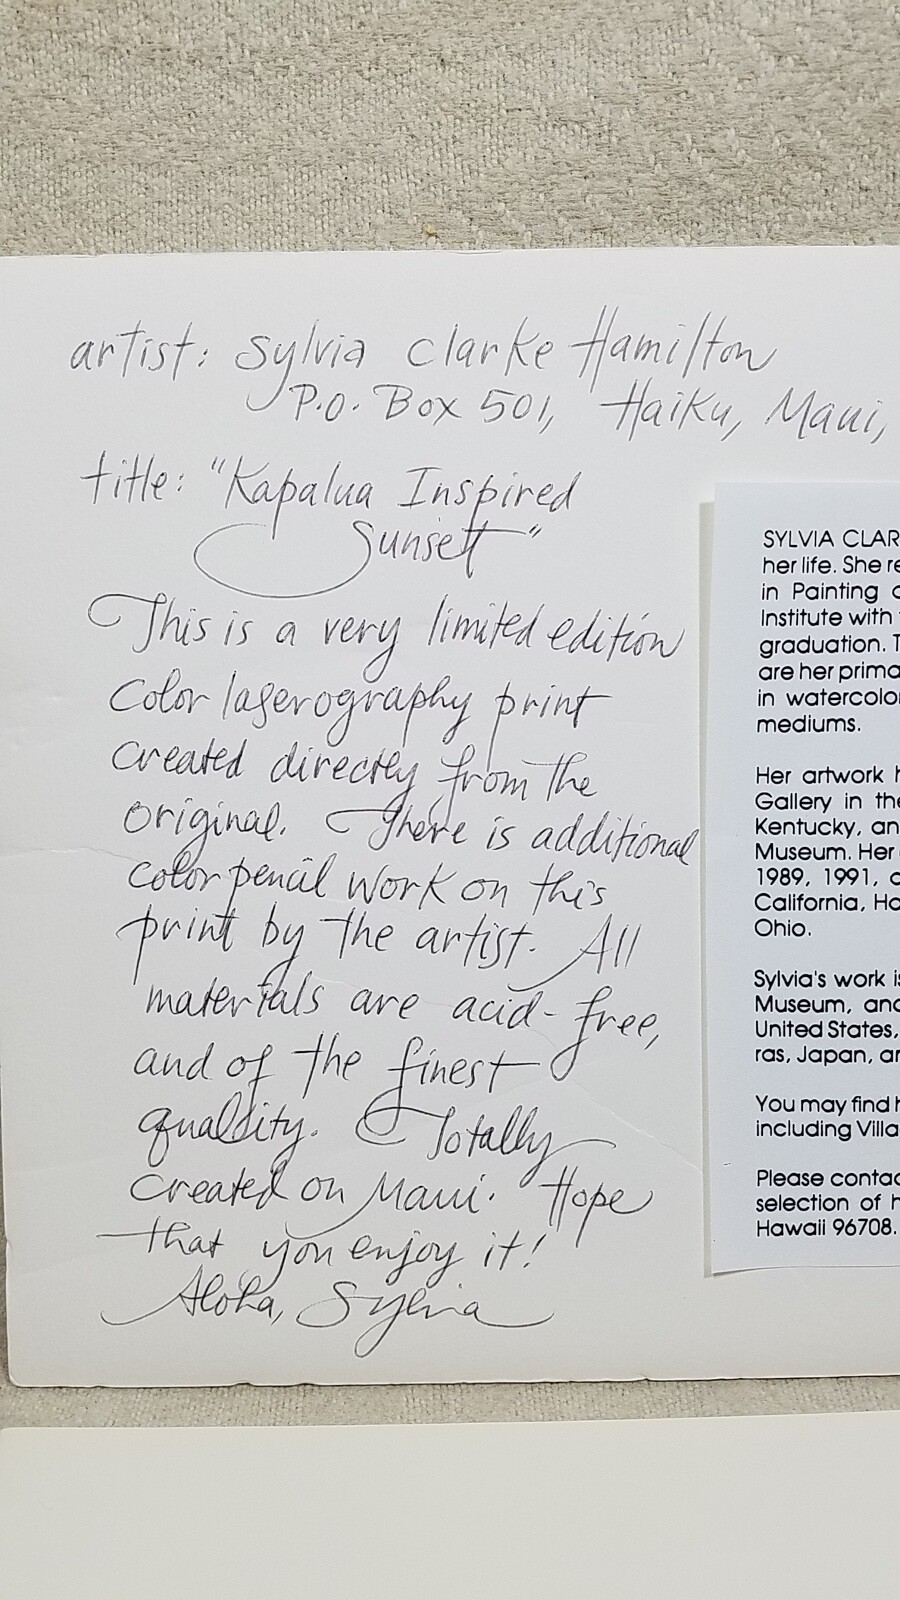 artist: Sylvia Clarke Hamilton
P.O. Box 501, Haiku, Maui,
title: "Kapalua Inspired
Sunset"
This is a very limited edition
color laserography print
created directly from the
original. There is additional
color pencil work on this
print by the artist. All
materials are acid-free,
and of the finest
quality. Totally
created on Maui. Hope
that you enjoy it!
Aloha, Sylvia
SYLVIA CLAR
her life. She re
in Painting
Institute with
graduation. T
are her prima
in watercolo
mediums.
Her artwork h
Gallery in the
Kentucky, an
Museum. Her
1989, 1991,
California, Ha
Ohio.
Sylvia's work is
Museum, and
United States,
ras, Japan, an
You may find h
including Villa
Please contac
selection of h
Hawaii 96708.